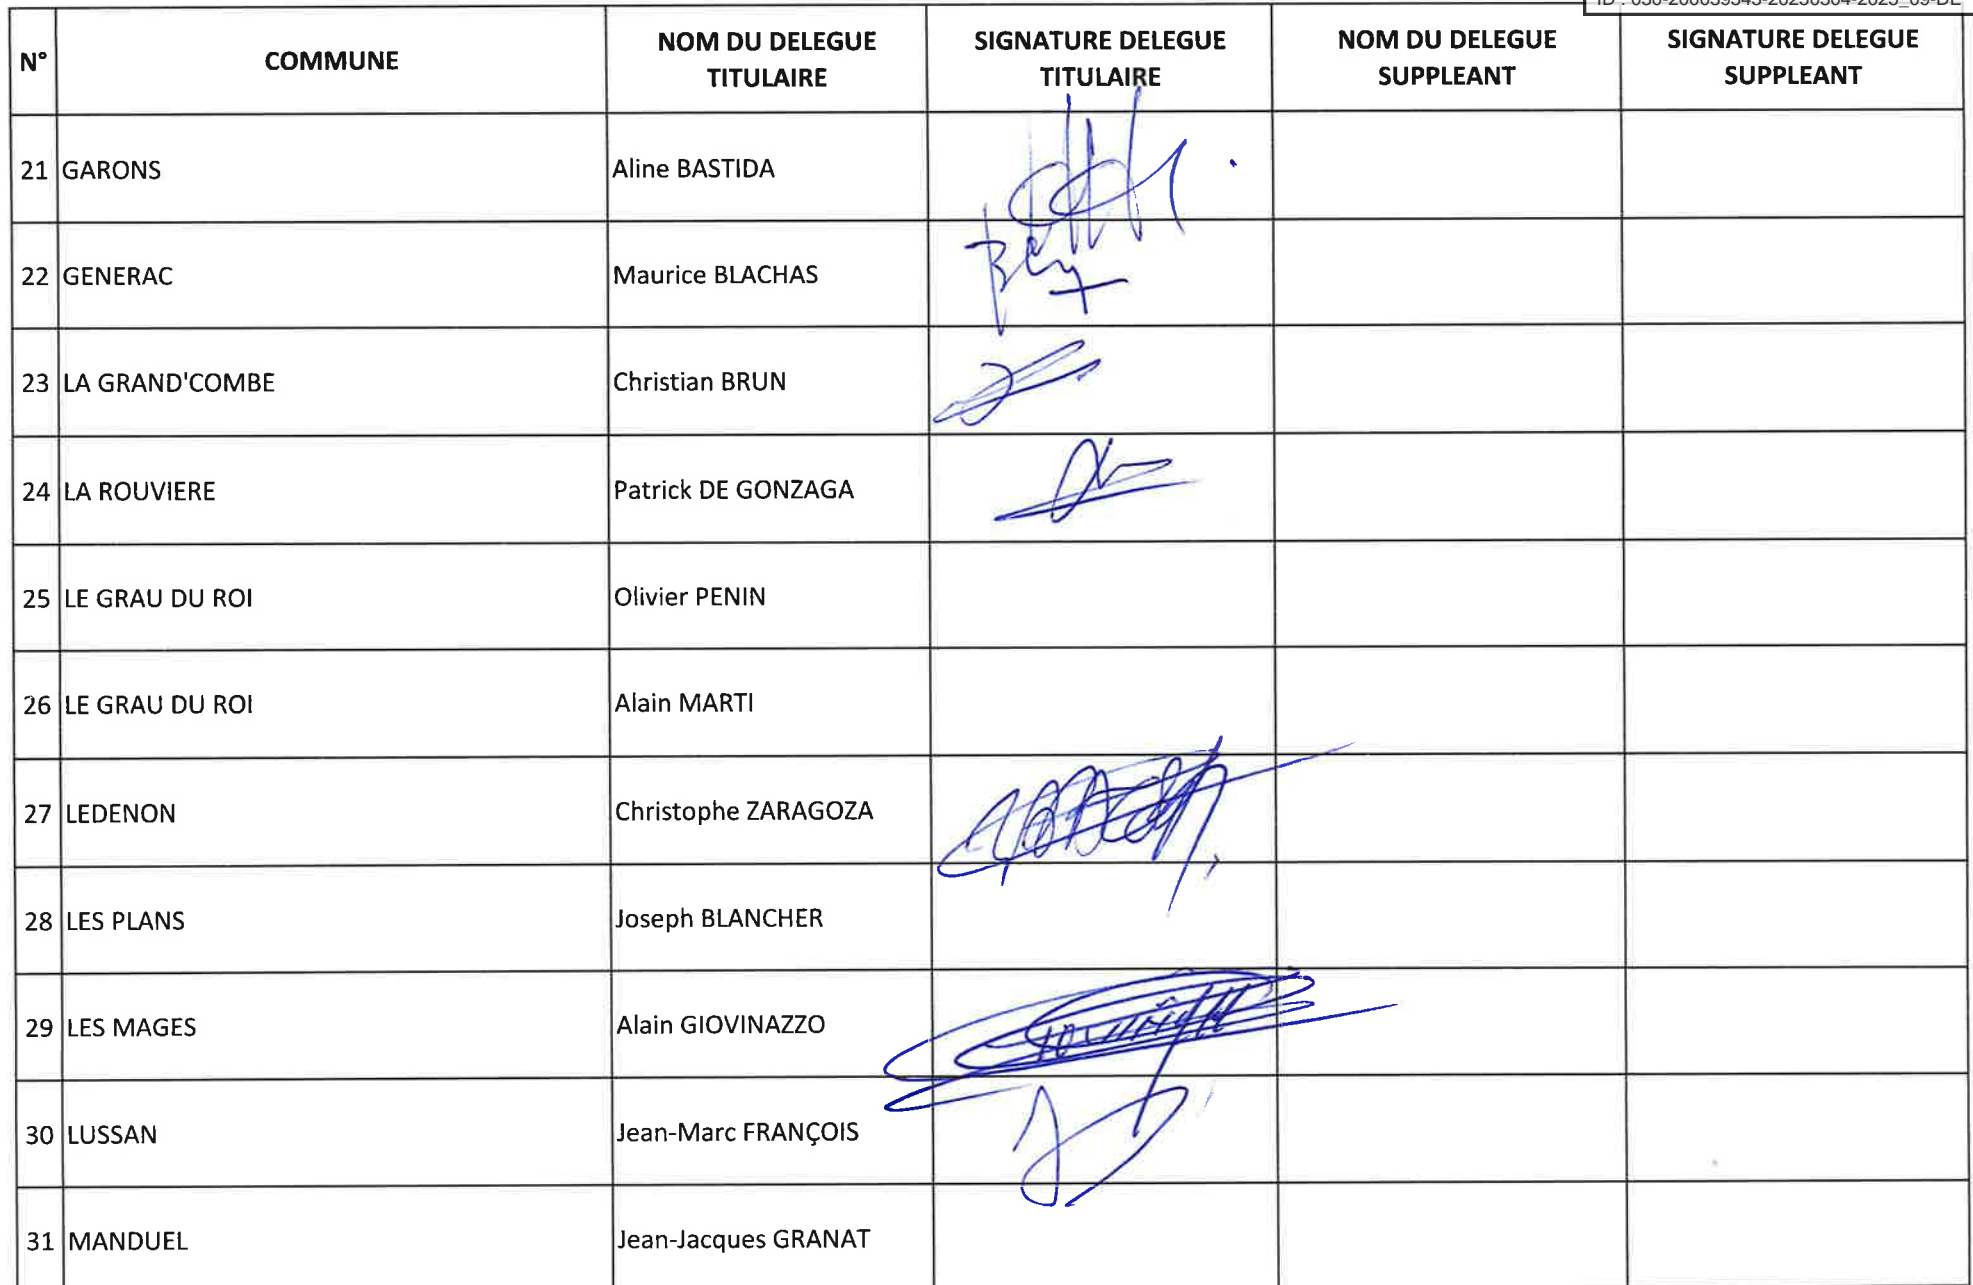 N° COMMUNE NOM DU DELEGUE TITULAIRE SIGNATURE DELEGUE TITULAIRE NOM DU DELEGUE SUPPLEANT SIGNATURE DELEGUE SUPPLEANT
21 GARONS Aline BASTIDA
22 GENERAC Maurice BLACHAS
23 LA GRAND'COMBE Christian BRUN
24 LA ROUVIERE Patrick DE GONZAGA
25 LE GRAU DU ROI Olivier PENIN
26 LE GRAU DU ROI Alain MARTI
27 LEDENON Christophe ZARAGOZA
28 LES PLANS Joseph BLANCHER
29 LES MAGES Alain GIOVINAZZO
30 LUSSAN Jean-Marc FRANÇOIS
31 MANDUEL Jean-Jacques GRANAT